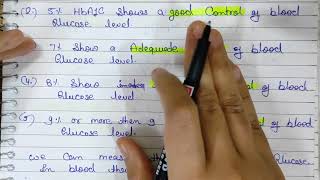 (2.) 5% HbA1C Shows a good Control of blood
Glucose level.
7% Show a Adequede of blood
Glucose level.
(4.) 8% Show of blood
Glucose level.
9% or more then 9 of blood
Glucose level.
we Can meas Glucose.
In blood thro